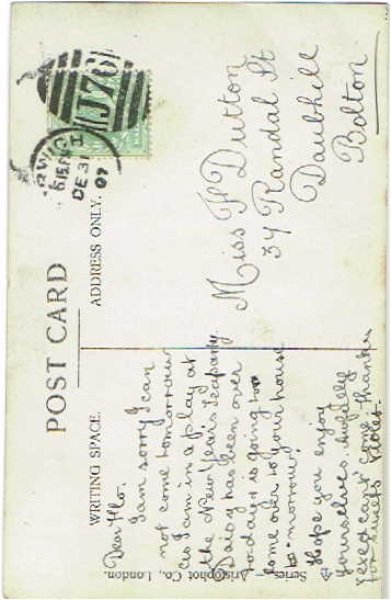 POST CARD
WRITING SPACE.
ADDRESS ONLY.
Dear Flo.
I am sorry I can
not come tomorrow
as I am in a play at
the New Year's teaparty.
Daisy has been over
today & is going to
come over to your house
to-morrow.
Hope you enjoy
yourselves. Awfully
good card come Thanks
for
Violet.
Miss F Dutton
34 Randal St
Daubhill
Bolton
J76
6 15 PM
DE 31
07
Series. – Aristophot Co., London.